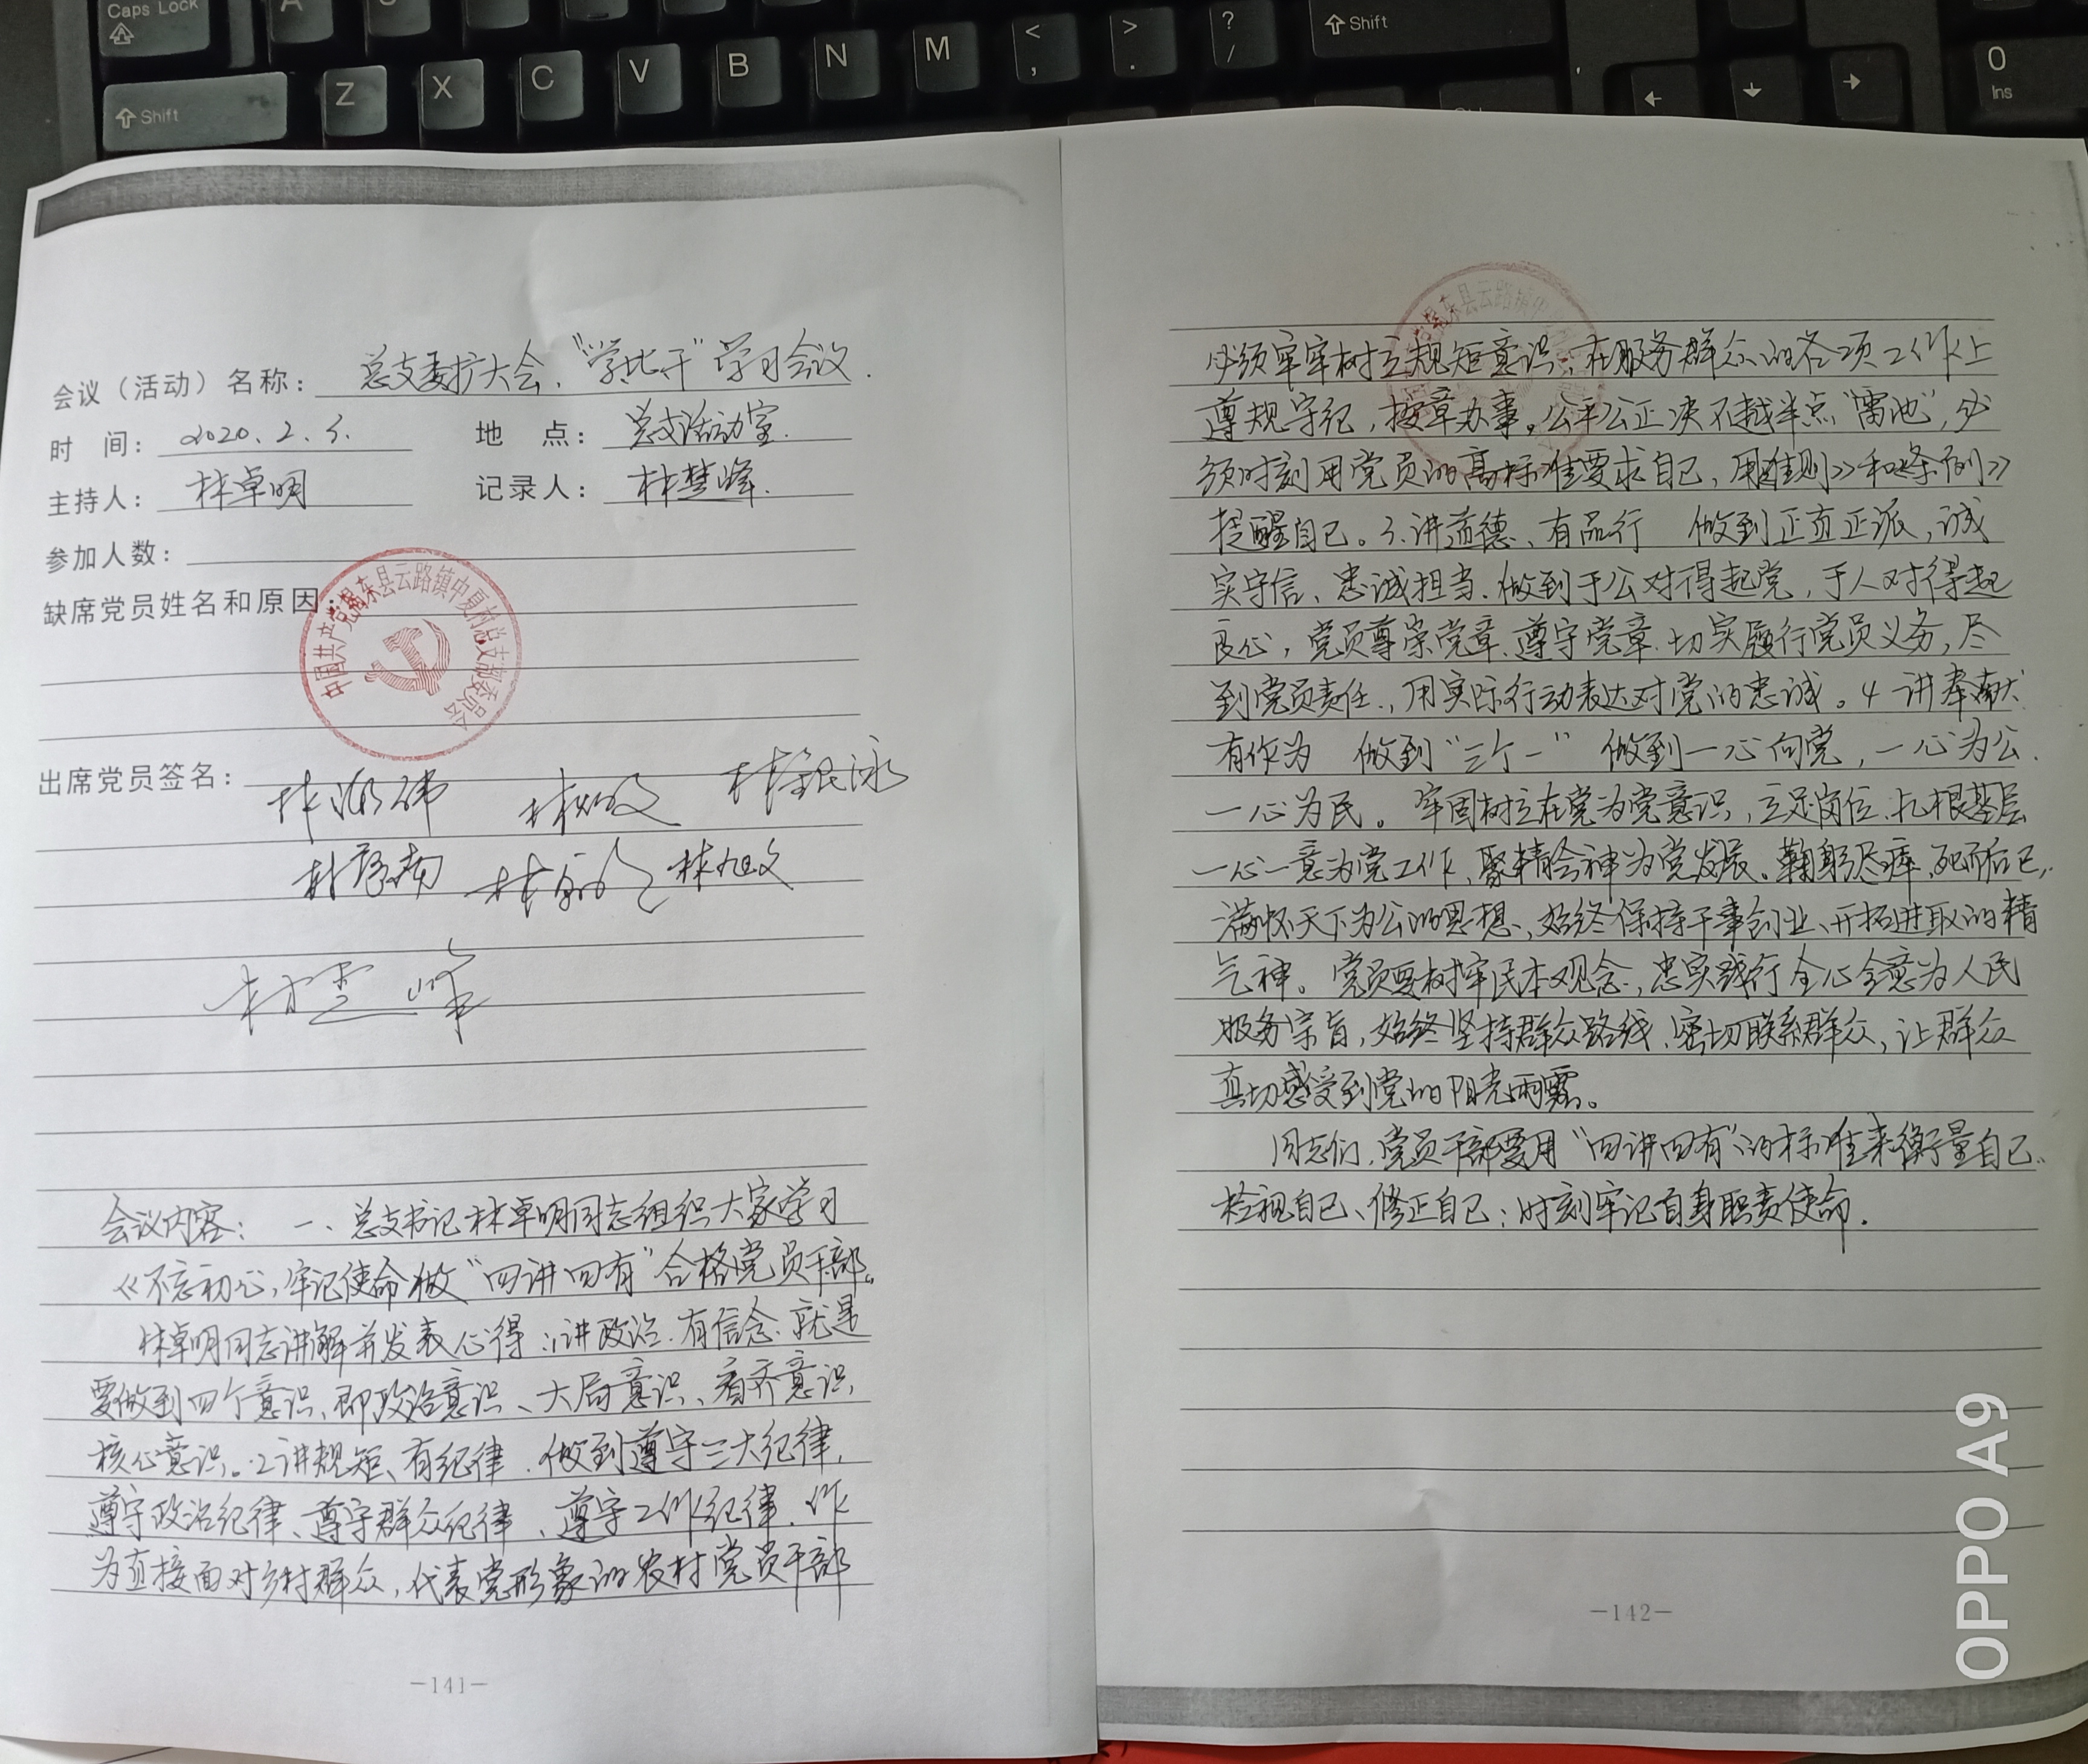 Caps Lock
Shift
Z X C V B N M < , > . ? / Shift
0 Ins
会议（活动）名称：总支委扩大会、“学比干”学习会议.
时 间：2020.2.5. 地 点：总支活动室.
主持人：林卓明 记录人：林楚峰.
参加人数：
缺席党员姓名和原因：
中国共产党揭东县云路镇中夏村总支部委员会
出席党员签名：
林旭文
会议内容： 一、总支书记林卓明同志组织大家学习
《不忘初心，牢记使命做“四讲四有”合格党员干部。
林卓明同志讲解并发表心得：1讲政治.有信念.就是
要做到四个意识、即政治意识、大局意识、看齐意识,
核心意识。2讲规矩、有纪律.做到遵守三大纪律,
遵守政治纪律、遵守群众纪律、遵守工作纪律.作
为直接面对乡村群众，代表党形象的农村党员干部
-141-
必须牢牢树立规矩意识；在服务群众的各项工作上
遵规守纪，按章办事。公平公正决不越半点“雷池”，必
须时刻用党员的高标准要求自己，用《准则》和《条例》
提醒自己。3.讲道德、有品行 做到正直正派，诚
实守信、忠诚担当.做到于公对得起党，于人对得起
良心，党员尊崇党章.遵守党章.切实履行党员义务，尽
到党员责任.，用实际行动表达对党的忠诚。4 讲奉献
有作为 做到“三个一” 做到一心向党，一心为公.
一心为民。牢固树立在党为党意识，立足岗位.扎根基层
一心一意为党工作，聚精会神为党发展。鞠躬尽瘁.死而后已,
满怀天下为公的思想、始终保持干事创业、开拓进取的精
气神。党员要树牢民本观念，忠实践行全心全意为人民
服务宗旨，始终坚持群众路线.密切联系群众，让群众
真切感受到党的阳光雨露。
同志们.党员干部要用“四讲四有”的标准来衡量自己.
检视自己、修正自己；时刻牢记自身职责使命.
-142-
OPPO A9